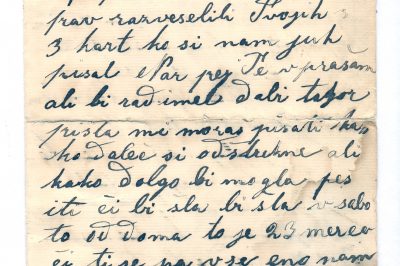 prav razveselili Tvojih
3 kart ko si nam jih
pisal Par pej Te vprašam
ali bi rad imel da bi tagor
prišla mi moraš pisati kako
ko daleč si od štrekne ali
kako dolgo bi mogla pes
iti či bi šla bi šla v sabo
to od doma to je 23 merco
či ti se pa vse eno nam